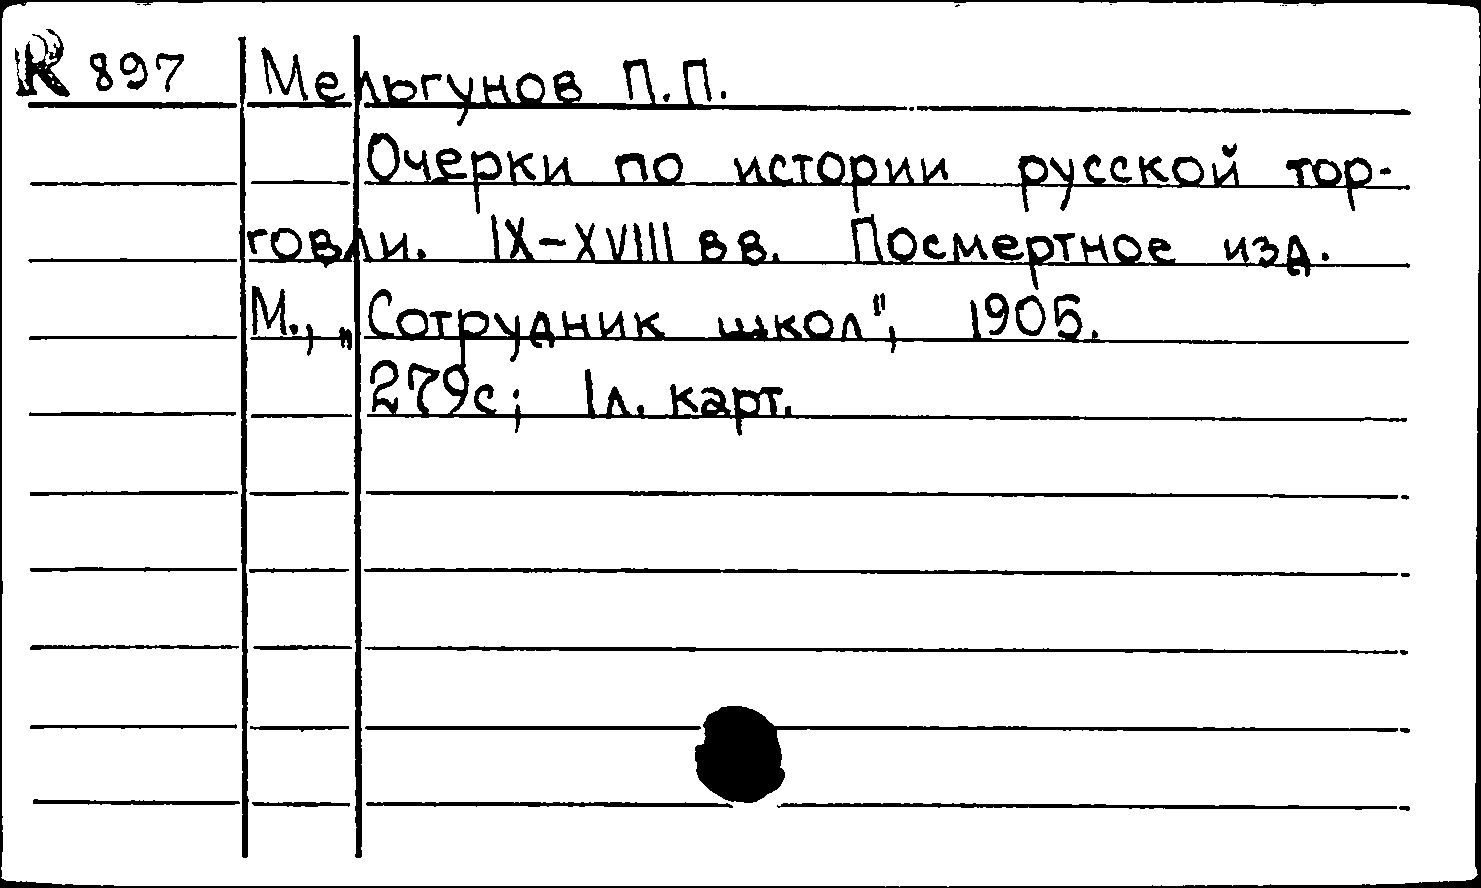 R 897 Мельгунов П.П.
Очерки по истории русской тор-
говли. IX-XVIII вв. Посмертное изд.
М., „Сотрудник школ", 1905.
279с; 1л. карт.